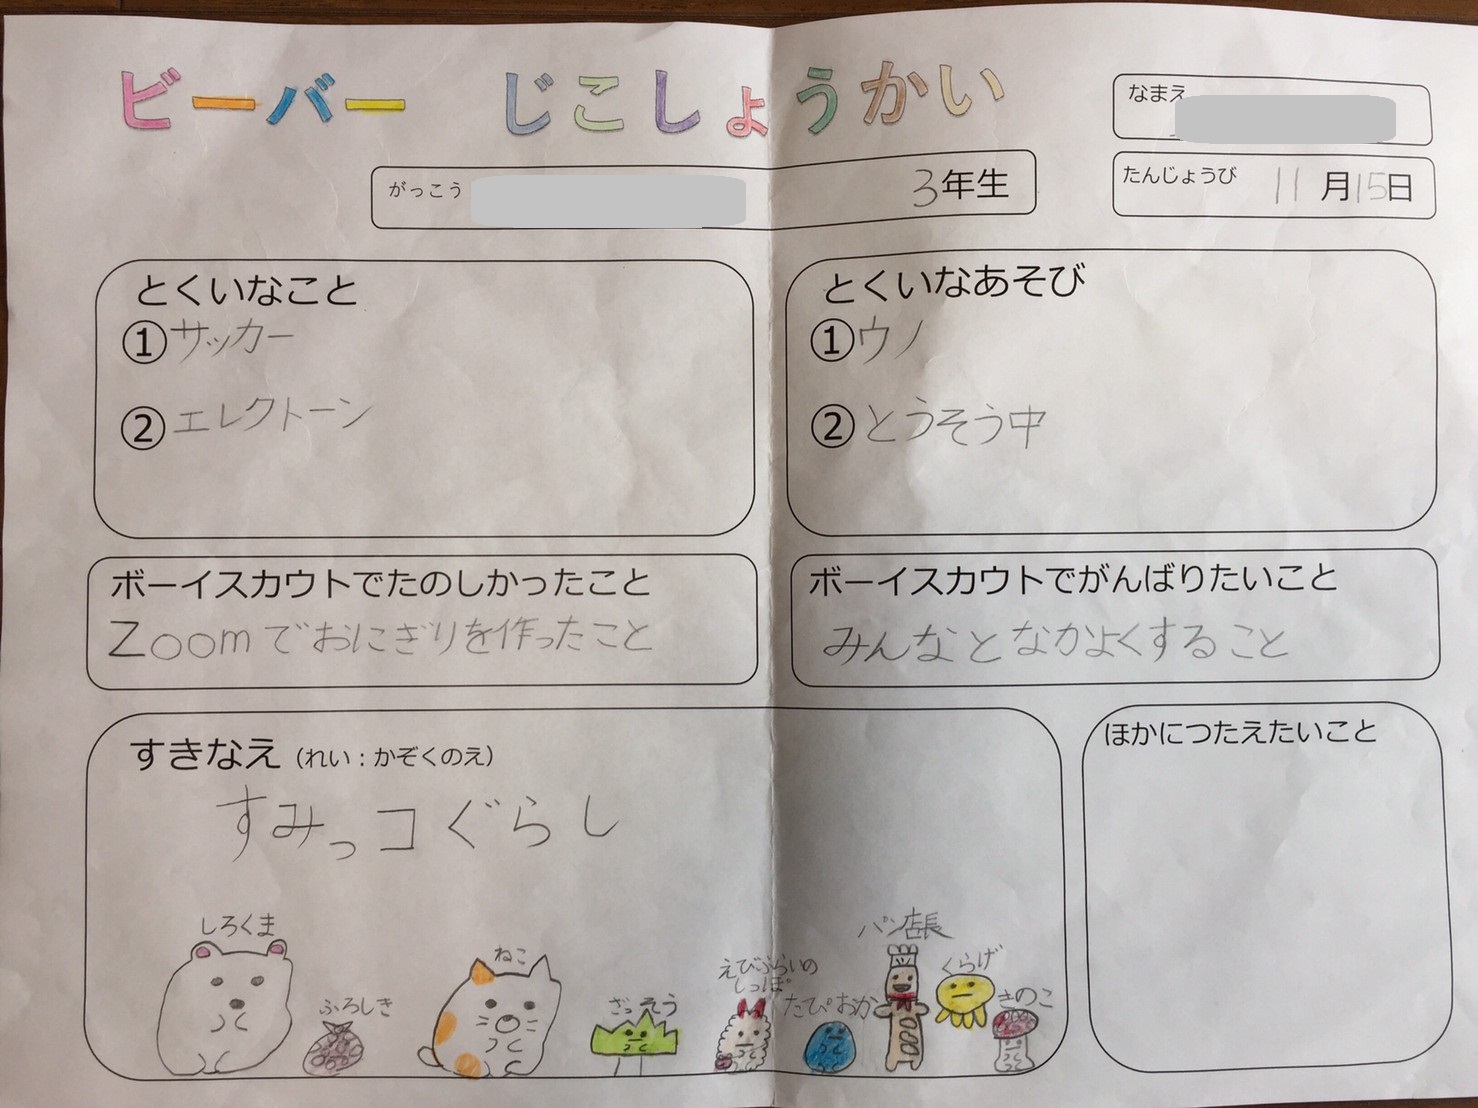 ビーバー じこしょうかい
なまえ
がっこう 3年生
たんじょうび 11月15日
とくいなこと
①サッカー
②エレクトーン
とくいなあそび
①ウノ
②とうそう中
ボーイスカウトでたのしかったこと
Zoomでおにぎりを作ったこと
ボーイスカウトでがんばりたいこと
みんなとなかよくすること
すきなえ（れい：かぞくのえ）
すみっコぐらし
しろくま
ふろしき
ねこ
ざっそう
えびふらいの
しっぽ
たぴおか
パン店長
くらげ
きのこ
ほかにつたえたいこと